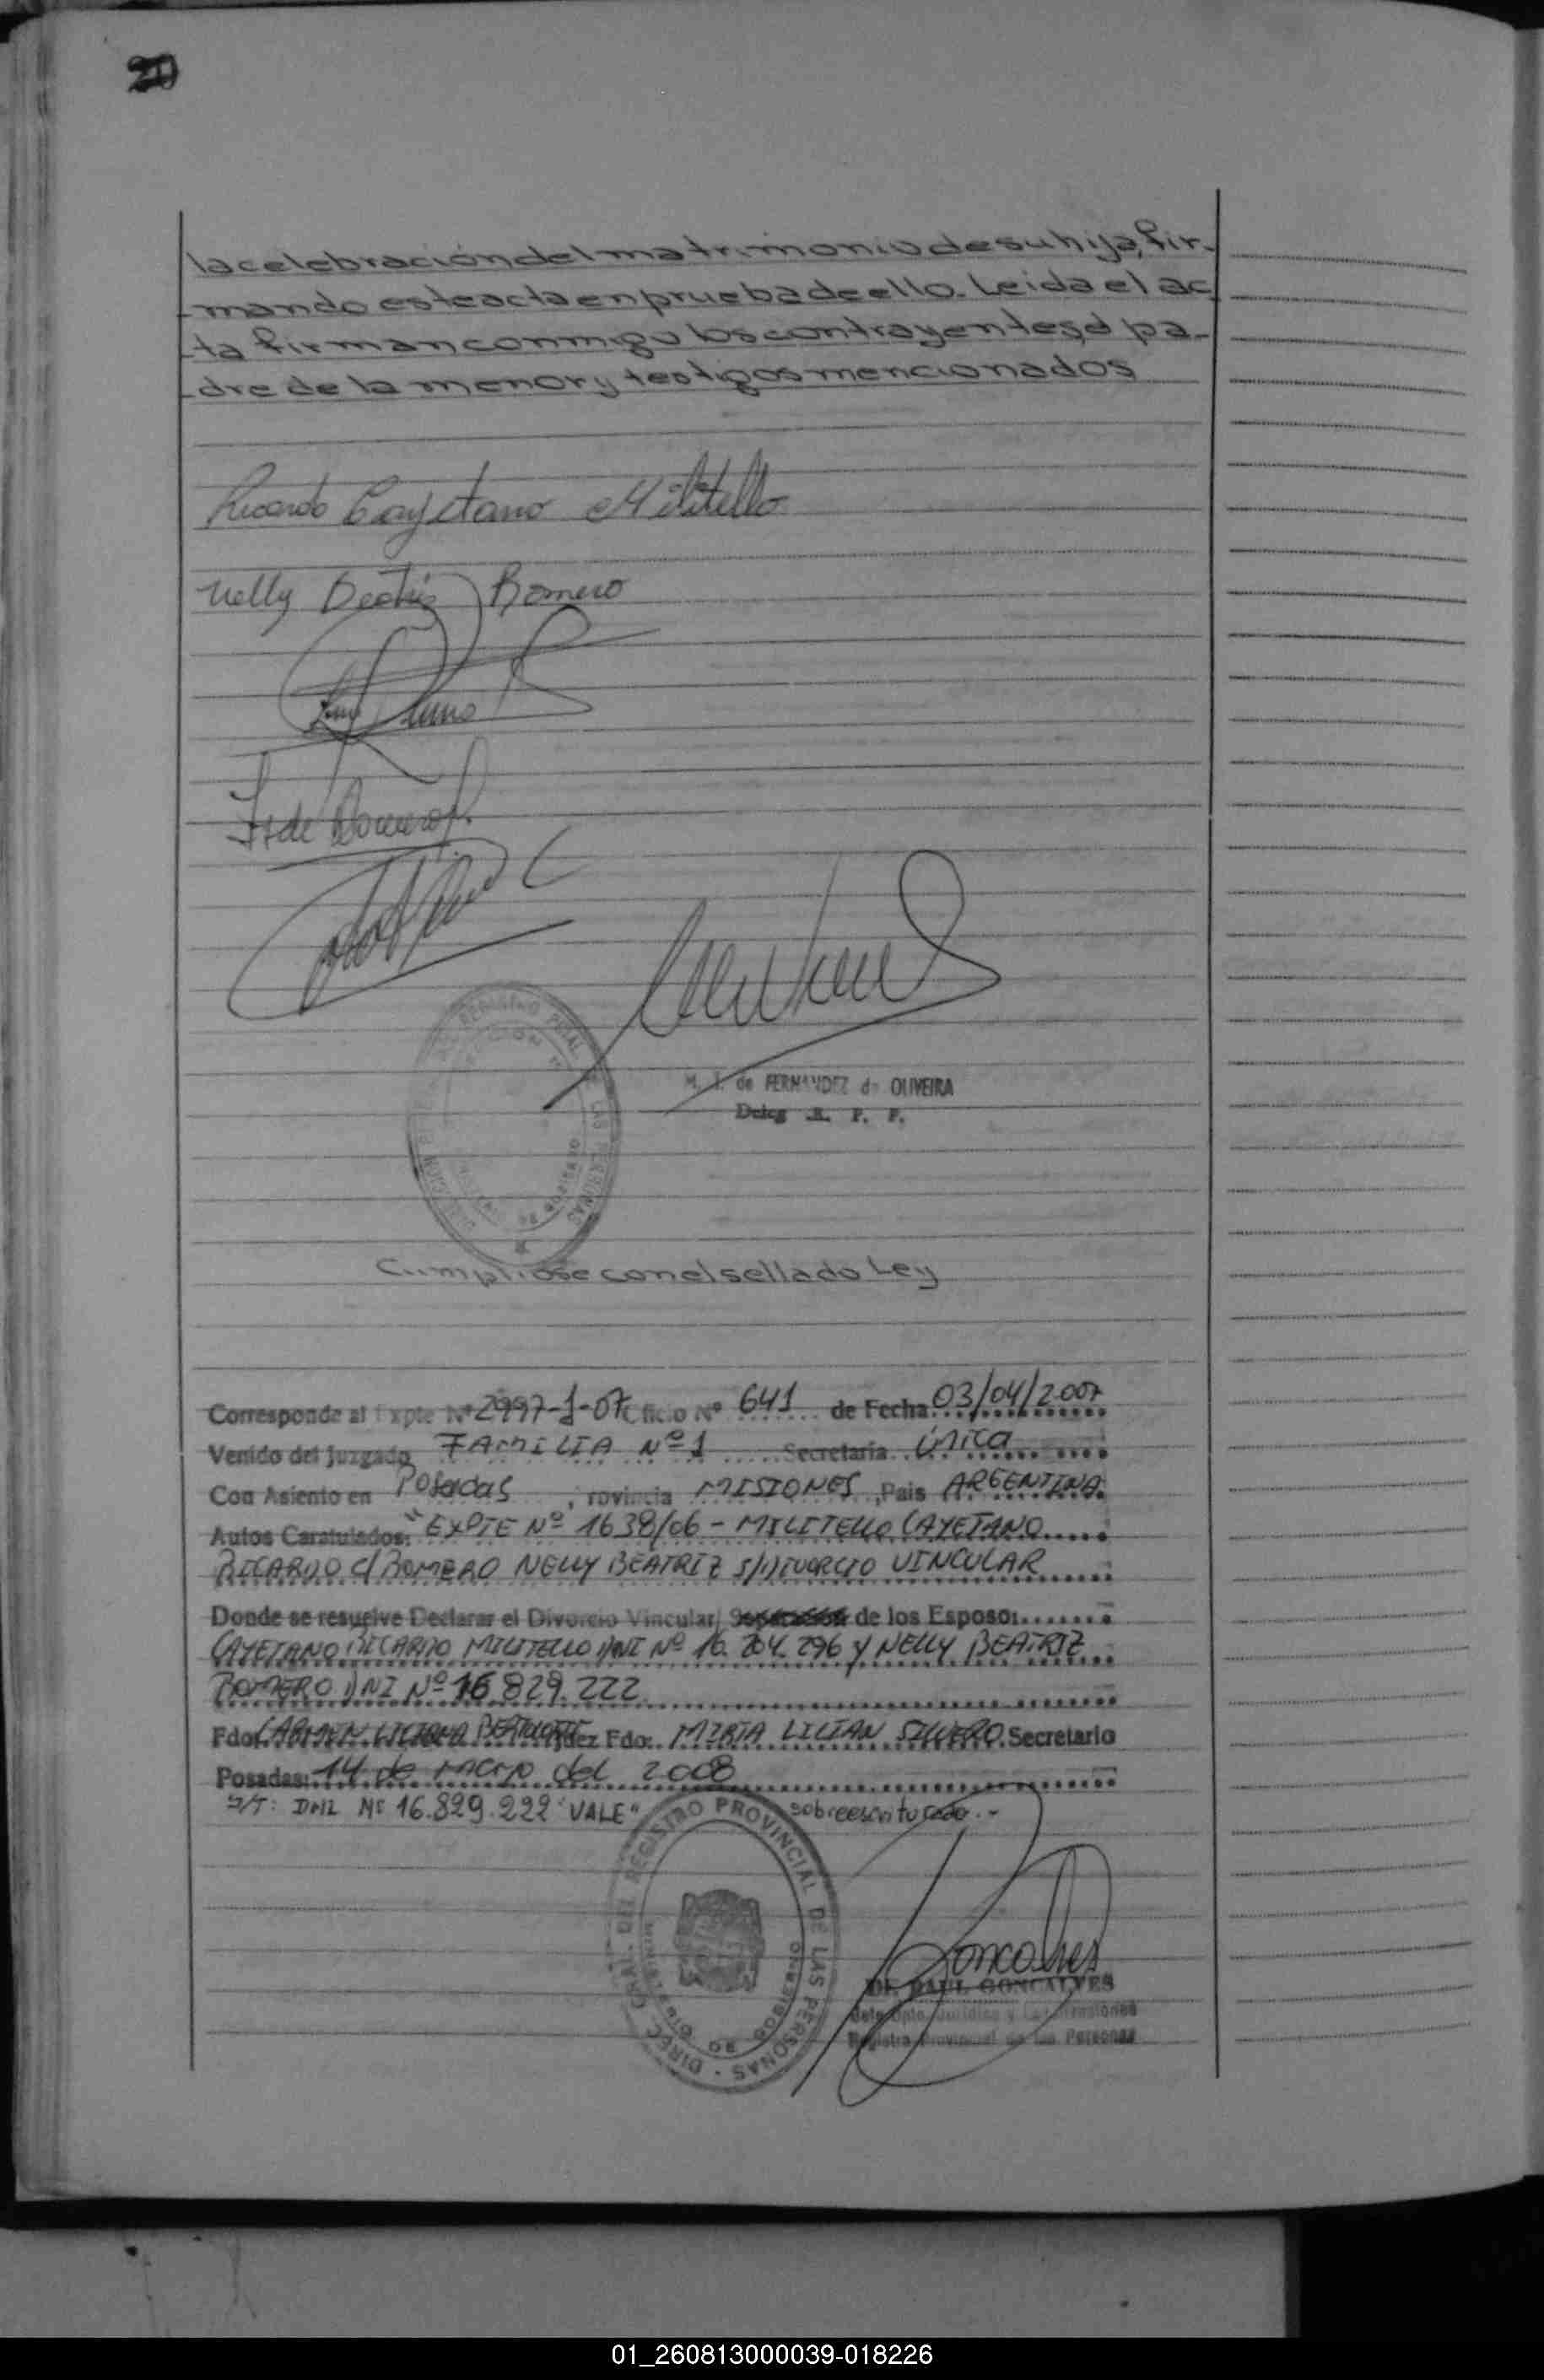 20
la celebración del matrimonio de su hija, fir-
mando este acta en prueba de ello. Leida el ac
ta firman conmigo los contrayentes, el pa-
dre de la menor y testigos mencionados
Ricardo Cayetano Militello
Nelly Beatriz Romero
M. I. de FERNANDEZ de OLIVEIRA
Deleg R. P. P.
Cumpliose con el sellado Ley
Corresponde al Expte Nº 2997-1-07 Oficio Nº 641 de Fecha 03/04/2007
Venido del Juzgado FAMILIA Nº 1 Secretaria única
Con Asiento en Posadas, Provincia MISIONES, Pais ARGENTINA
Autos Caratulados: "EXPTE Nº 1638/06 - MILITELLO CAYETANO
RICARDO C/ ROMERO NELLY BEATRIZ S/DIVORCIO VINCULAR
Donde se resuelve Declarar el Divorcio Vincular/ Separación de los Esposos
CAYETANO RICARDO MILITELLO DNI Nº 16.204.296 y NELLY BEATRIZ
ROMERO DNI Nº 16.829.222
Fdo: CARMEN Juez Fdo: MIRTA LILIAN SILVERO Secretario
Posadas: 14 de marzo del 2008
S/T: DNI Nº 16.829.222 "VALE" sobreescriturado.-
DIREC. GRAL. DEL REGISTRO PROVINCIAL DE LAS PERSONAS
GONCALVES
Registro Provincial de las Personas
01_260813000039-018226